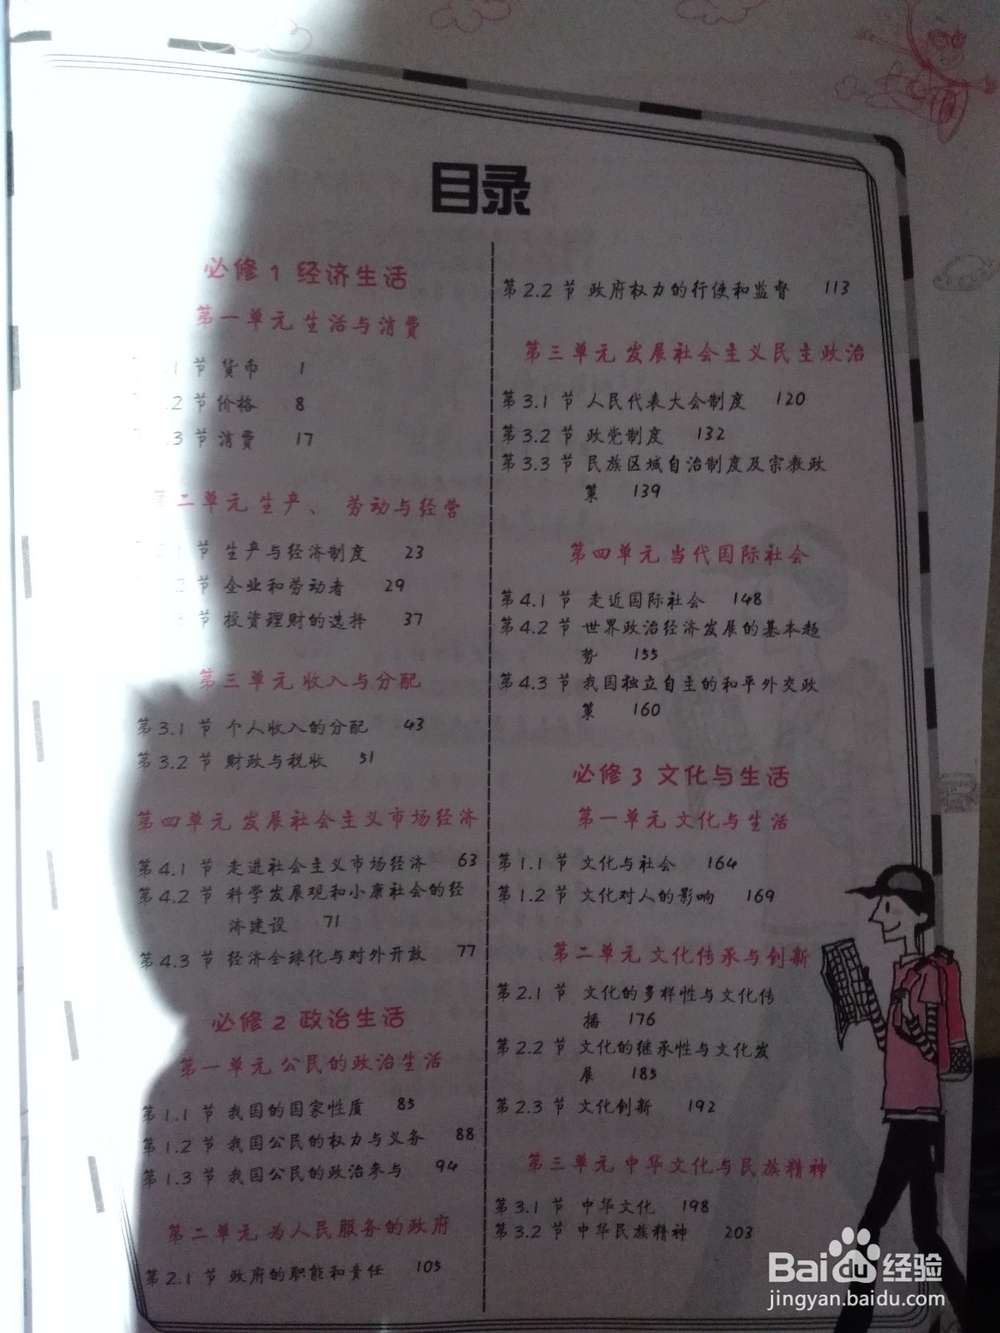 目录
必修1 经济生活
第一单元 生活与消费
节 货币 1
.2 节 价格 8
.3 节 消费 17
二单元 生产、劳动与经营
节 生产与经济制度 23
节 企业和劳动者 29
节 投资理财的选择 37
第三单元 收入与分配
第3.1 节 个人收入的分配 43
第3.2 节 财政与税收 51
第四单元 发展社会主义市场经济
第4.1 节 走进社会主义市场经济 63
第4.2 节 科学发展观和小康社会的经
济建设 71
第4.3 节 经济全球化与对外开放 77
必修2 政治生活
第一单元 公民的政治生活
第1.1 节 我国的国家性质 85
第1.2 节 我国公民的权力与义务 88
第1.3 节 我国公民的政治参与 94
第二单元 为人民服务的政府
第2.1 节 政府的职能和责任 105
第2.2 节 政府权力的行使和监督 113
第三单元 发展社会主义民主政治
第3.1 节 人民代表大会制度 120
第3.2 节 政党制度 132
第3.3 节 民族区域自治制度及宗教政
策 139
第四单元 当代国际社会
第4.1 节 走近国际社会 148
第4.2 节 世界政治经济发展的基本趋
势 155
第4.3 节 我国独立自主的和平外交政
策 160
必修3 文化与生活
第一单元 文化与生活
第1.1 节 文化与社会 164
第1.2 节 文化对人的影响 169
第二单元 文化传承与创新
第2.1 节 文化的多样性与文化传
播 176
第2.2 节 文化的继承性与文化发
展 185
第2.3 节 文化创新 192
第三单元 中华文化与民族精神
第3.1 节 中华文化 198
第3.2 节 中华民族精神 203
Baidu 经验
jingyan.baidu.com